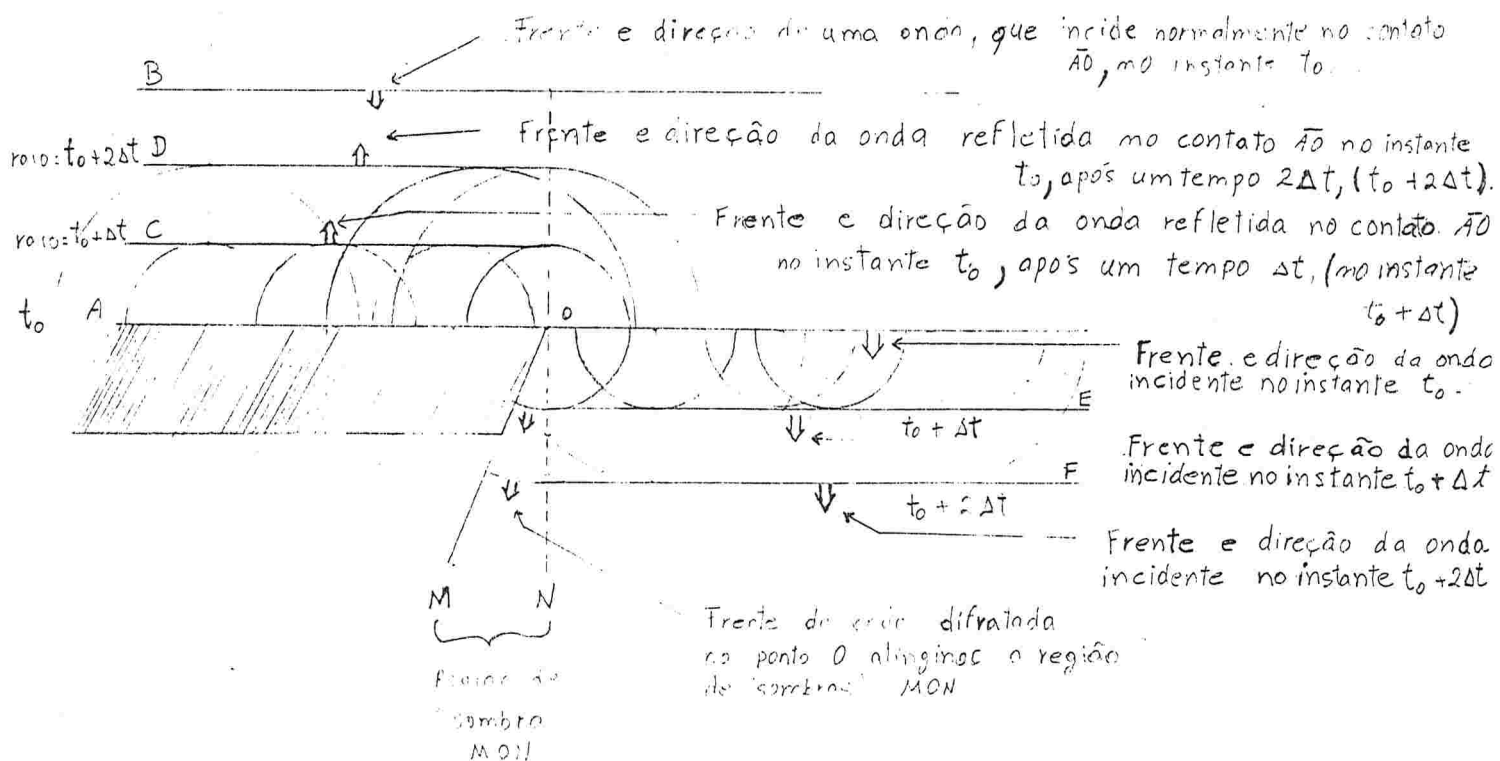 Frente e direção de uma onda, que incide normalmente no contato
A̅O̅, no instante t₀.
B
Frente e direção da onda refletida no contato A̅O̅ no instante
t₀, após um tempo 2Δt, (t₀ + 2Δt).
raio: t₀+2Δt D
Frente e direção da onda refletida no contato A̅O̅
no instante t₀, após um tempo Δt, (no instante
t₀ + Δt)
raio: t₀+Δt C
t₀ A O
Frente e direção da onda
incidente no instante t₀.
E
t₀ + Δt
Frente e direção da onda
incidente no instante t₀ + Δt
F
t₀ + 2Δt
Frente e direção da onda
incidente no instante t₀ +2Δt
M N
Frente de onda difratada
no ponto O
região
de "sombra" MON
sombra
MON